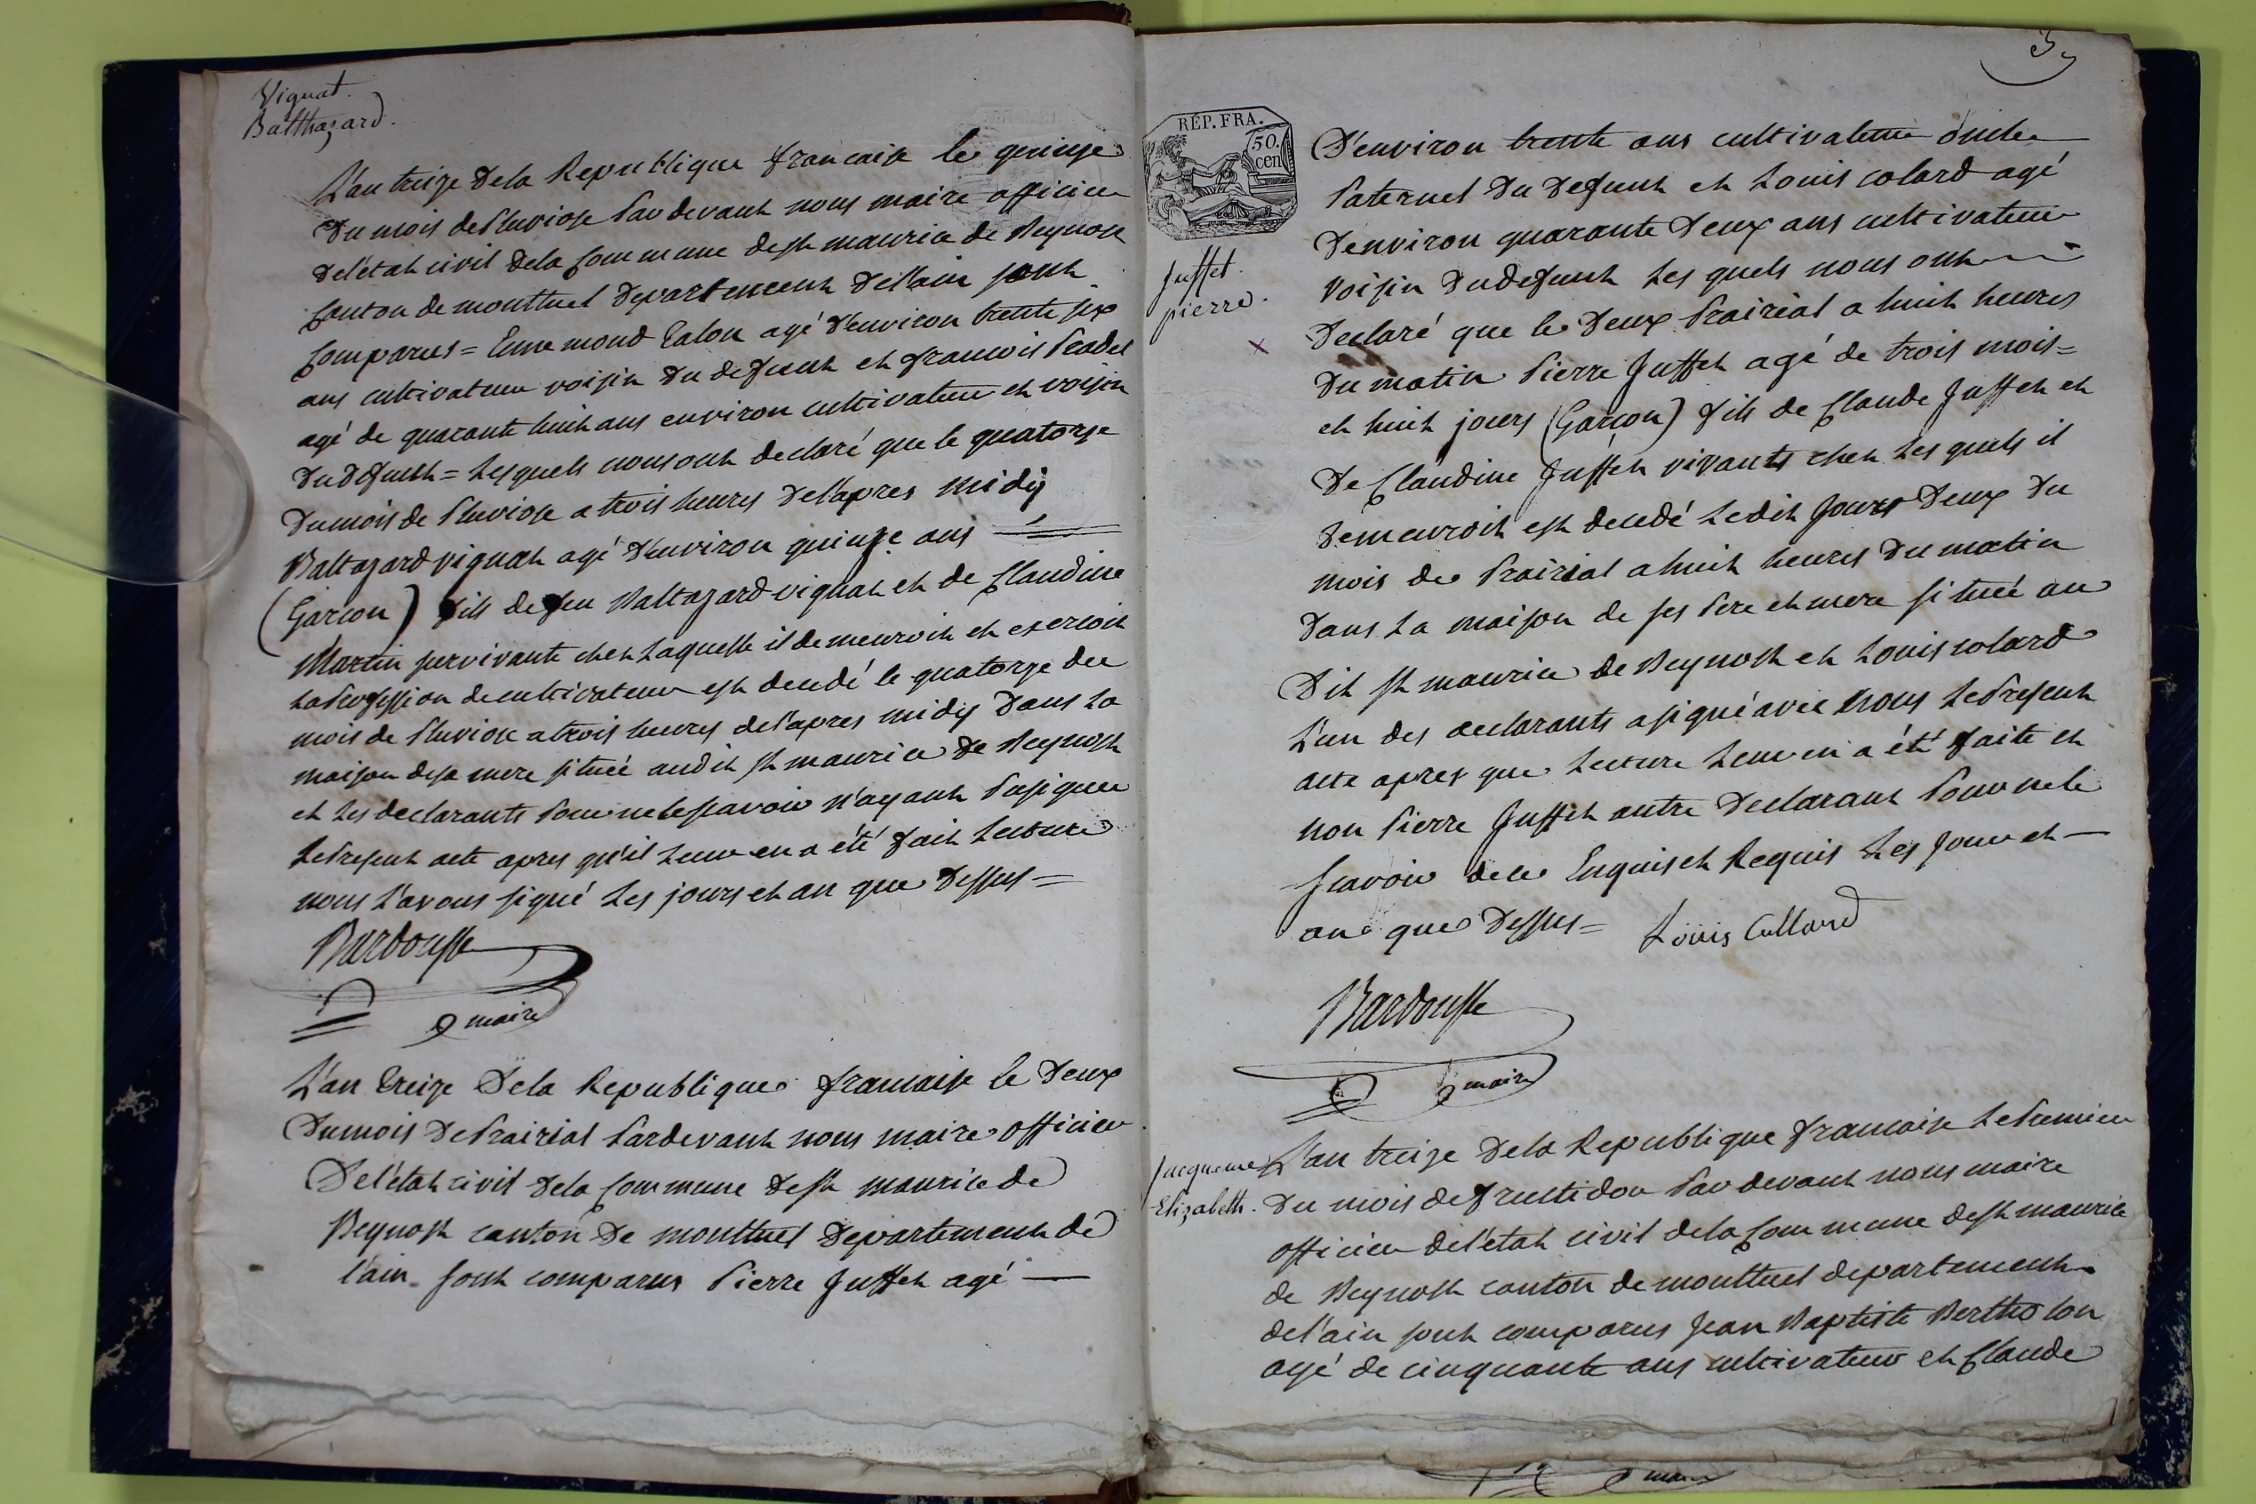 Vignat.
Balthazard.
L'an treize de la Republique francaise le quinze
du mois de Pluviose Par devant nous maire officier
de l'état civil de la Commune de st maurice de Beynost
Canton de montluel departement de l'ain sont
Comparus = Ennemond Galon agé d'environ trente six
ans cultivateur voisin du defunt et francois Peadel
agé de quarante huit ans environ cultivateur et voisin
du defunt = Lesquels nous ont declaré que le quatorze
du mois de Pluviose a trois heures de l'apres midy
Baltazard vignat agé d'environ quinze ans
(Garcon) fils de feu Baltazard vignat et de Claudine
Martin survivante chez Laquelle il demeuroit et exercoit
La Profession de cultivateur est decedé le quatorze du
mois de Pluviose a trois heures de l'apres midy Dans La
maison de sa mere située audit st maurice de Beynost
et Les declarants Pour ne le scavoir n'ayant Pu signer
Le Present acte apres qu'il Leur en a été fait Lecture
nous L'avons signé Les jours et an que Dessus =
Bardousse
maire
L'an treize De la Republique francaise le Deux
Du mois De Prairial Pardevant nous maire officier
De l'état civil de la Commune de st maurice de
Beynost canton De montluel Departement de
l'ain sont comparus Pierre Juffet agé —
3
RÉP. FRA.
50.
cen
D'environ trente ans cultivateur oncle
Paternel du Defunt et Louis colard agé
D'environ quarante Deux ans cultivateur
voisin du defunt Les quels nous ont
Juffet.
pierre.
Declaré que le Deux Prairial a huit heures
Du matin Pierre Juffet agé de trois mois =
et huit jours (Garcon) fils de Claude Juffet et
De Claudine Juffet vivants chez Les quels il
Demeuroit est decedé Ledit Jours Deux Du
mois de Prairial a huit heures Du matin
Dans La maison de ses Pere et mere située au
Dit st maurice de Beynost et Louis colard
L'un des declarants a signé avec Nous Le Present
acte apres que Lecture Leur en a été faite et
non Pierre Juffet autre Declarant Pour ne le
scavoir de ce Enquis et Requis Les Jour et —
an que Dessus = Louis Collard
Bardousse
maire
Jacqueme
Elizabeth.
L'an treize De la Republique francaise Le Premier
Du mois de fructidor Par devant nous maire
officier de l'état civil de la Commune de st maurice
de Beynost canton de montluel departement
de l'ain sont comparus Jean Baptiste Bertholon
agé de cinquante ans cultivateur et Claude
maire